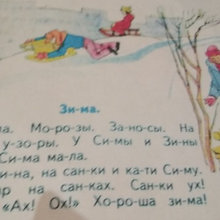 Зи-ма.
Мо-ро-зы. За-но-сы. На
у-зо-ры. У Си-мы и Зи-ны
Си-ма ма-ла.
на сан-ки и ка-ти Си-му.
на сан-ках. Сан-ки ух!
«Ах! Ох!» Хо-ро-ша зи-ма!